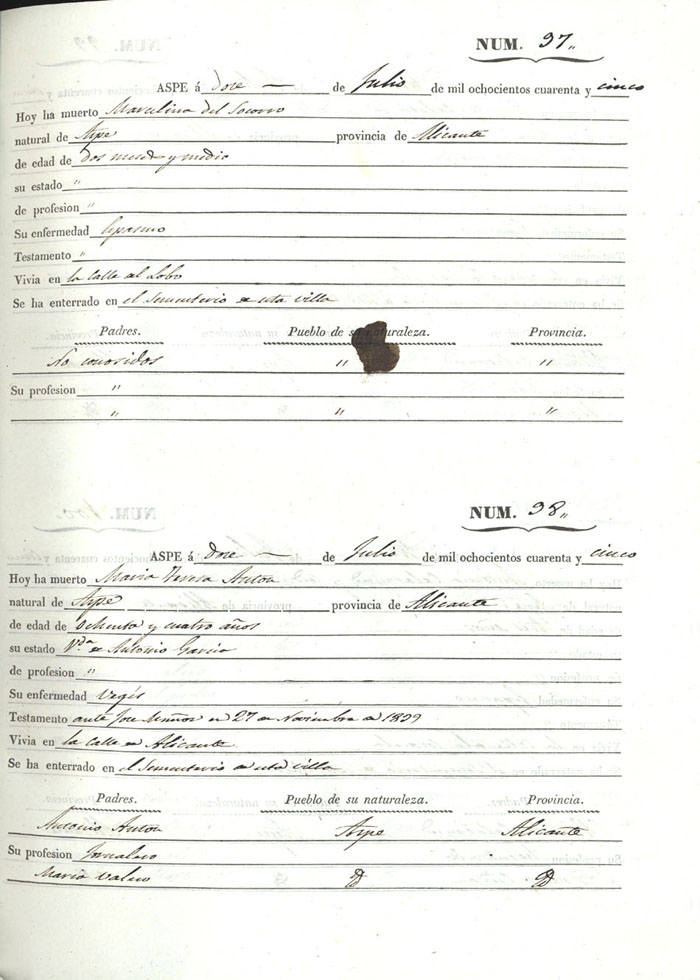 NUM. 97,,
ASPE á Doze — de Julio de mil ochocientos cuarenta y cinco
Hoy ha muerto Marcelina del Socorro
natural de Aspe provincia de Alicante
de edad de dos meses y medio
su estado "
de profesion "
Su enfermedad Espasmo
Testamento "
Vivia en la Calle del Lobo
Se ha enterrado en el Sementerio de esta villa
Padres. Pueblo de su naturaleza. Provincia.
No conosidos " "
Su profesion "
" " "
NUM. 98,,
ASPE á Doze — de Julio de mil ochocientos cuarenta y cinco
Hoy ha muerto Maria Teresa Anton
natural de Aspe provincia de Alicante
de edad de Ochenta y cuatro años
su estado V.da de Antonio Garcia
de profesion "
Su enfermedad Vegés
Testamento ante Jose Muñoz en 27 de Noviembre de
Vivia en la Calle de Alicante
Se ha enterrado en el Sementerio de esta villa
Padres. Pueblo de su naturaleza. Provincia.
Antonio Anton Aspe Alicante
Su profesion Jornalero
Maria Valero D D